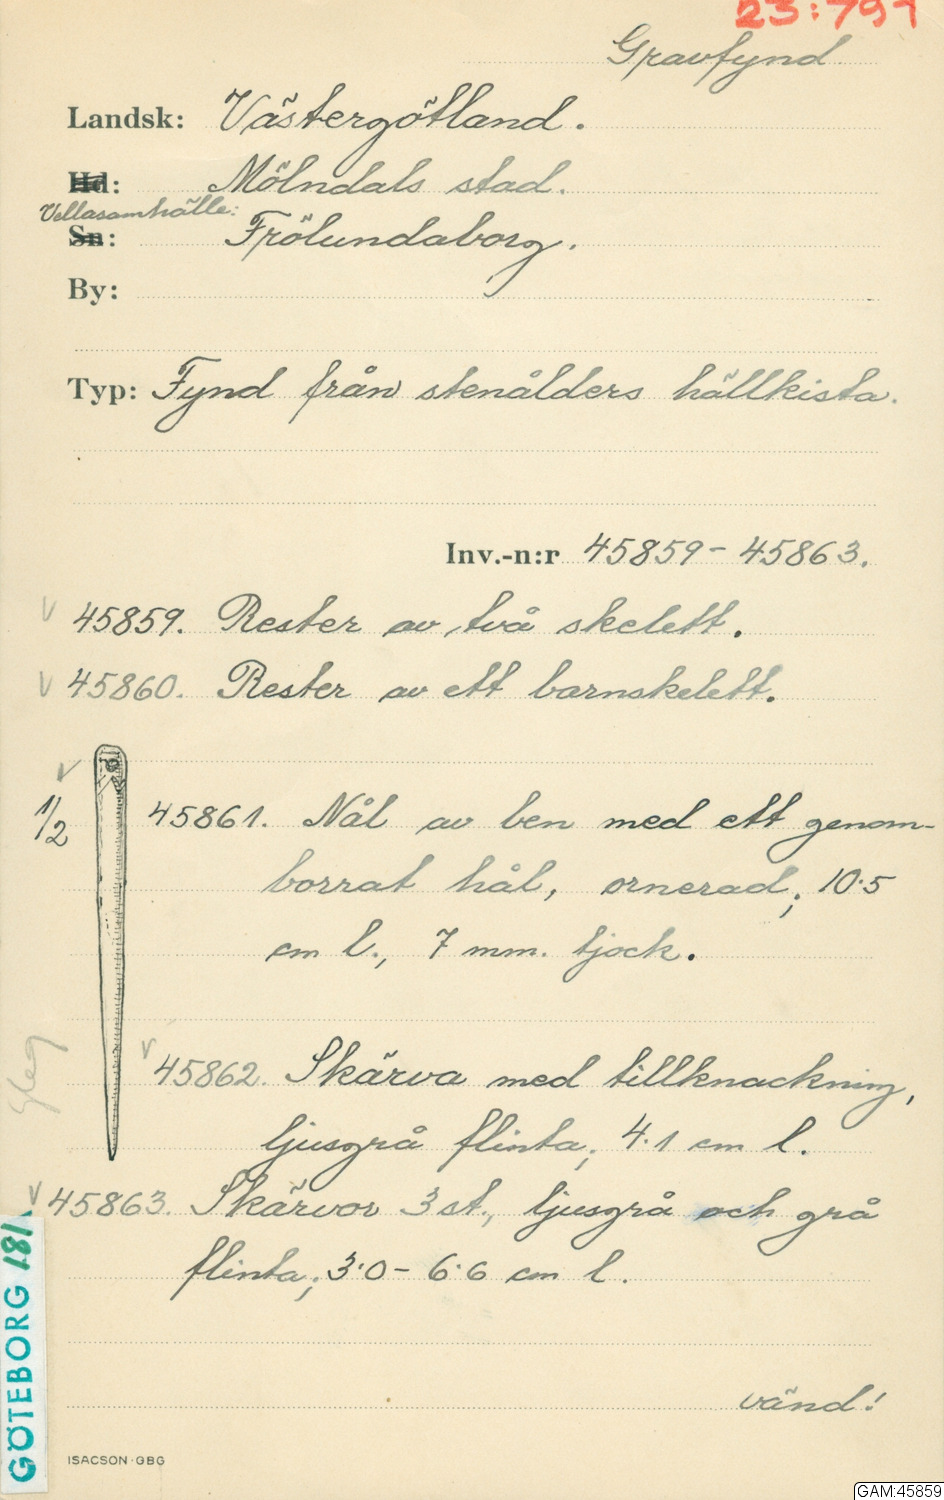 23:797
Gravfynd
Landsk: Västergötland.
Hd: Mölndals stad.
Villasamhälle:
Sn: Frölundaborg.
By:
Typ: Fynd från stenålders hällkista.
Inv.-n:r 45859-45863.
v 45859. Rester av två skelett.
v 45860. Rester av ett barnskelett.
v
1/2
45861. Nål av ben med ett genom-
borrat hål, ornerad; 10.5
cm l., 7 mm. tjock.
v 45862. Skärva med tillknackning,
ljusgrå flinta; 4.1 cm l.
v 45863. Skärvor 3 st., ljusgrå och grå
flinta; 3.0-6.6 cm l.
GÖTEBORG 181
vänd!
ISACSON·GBG
GAM:45859